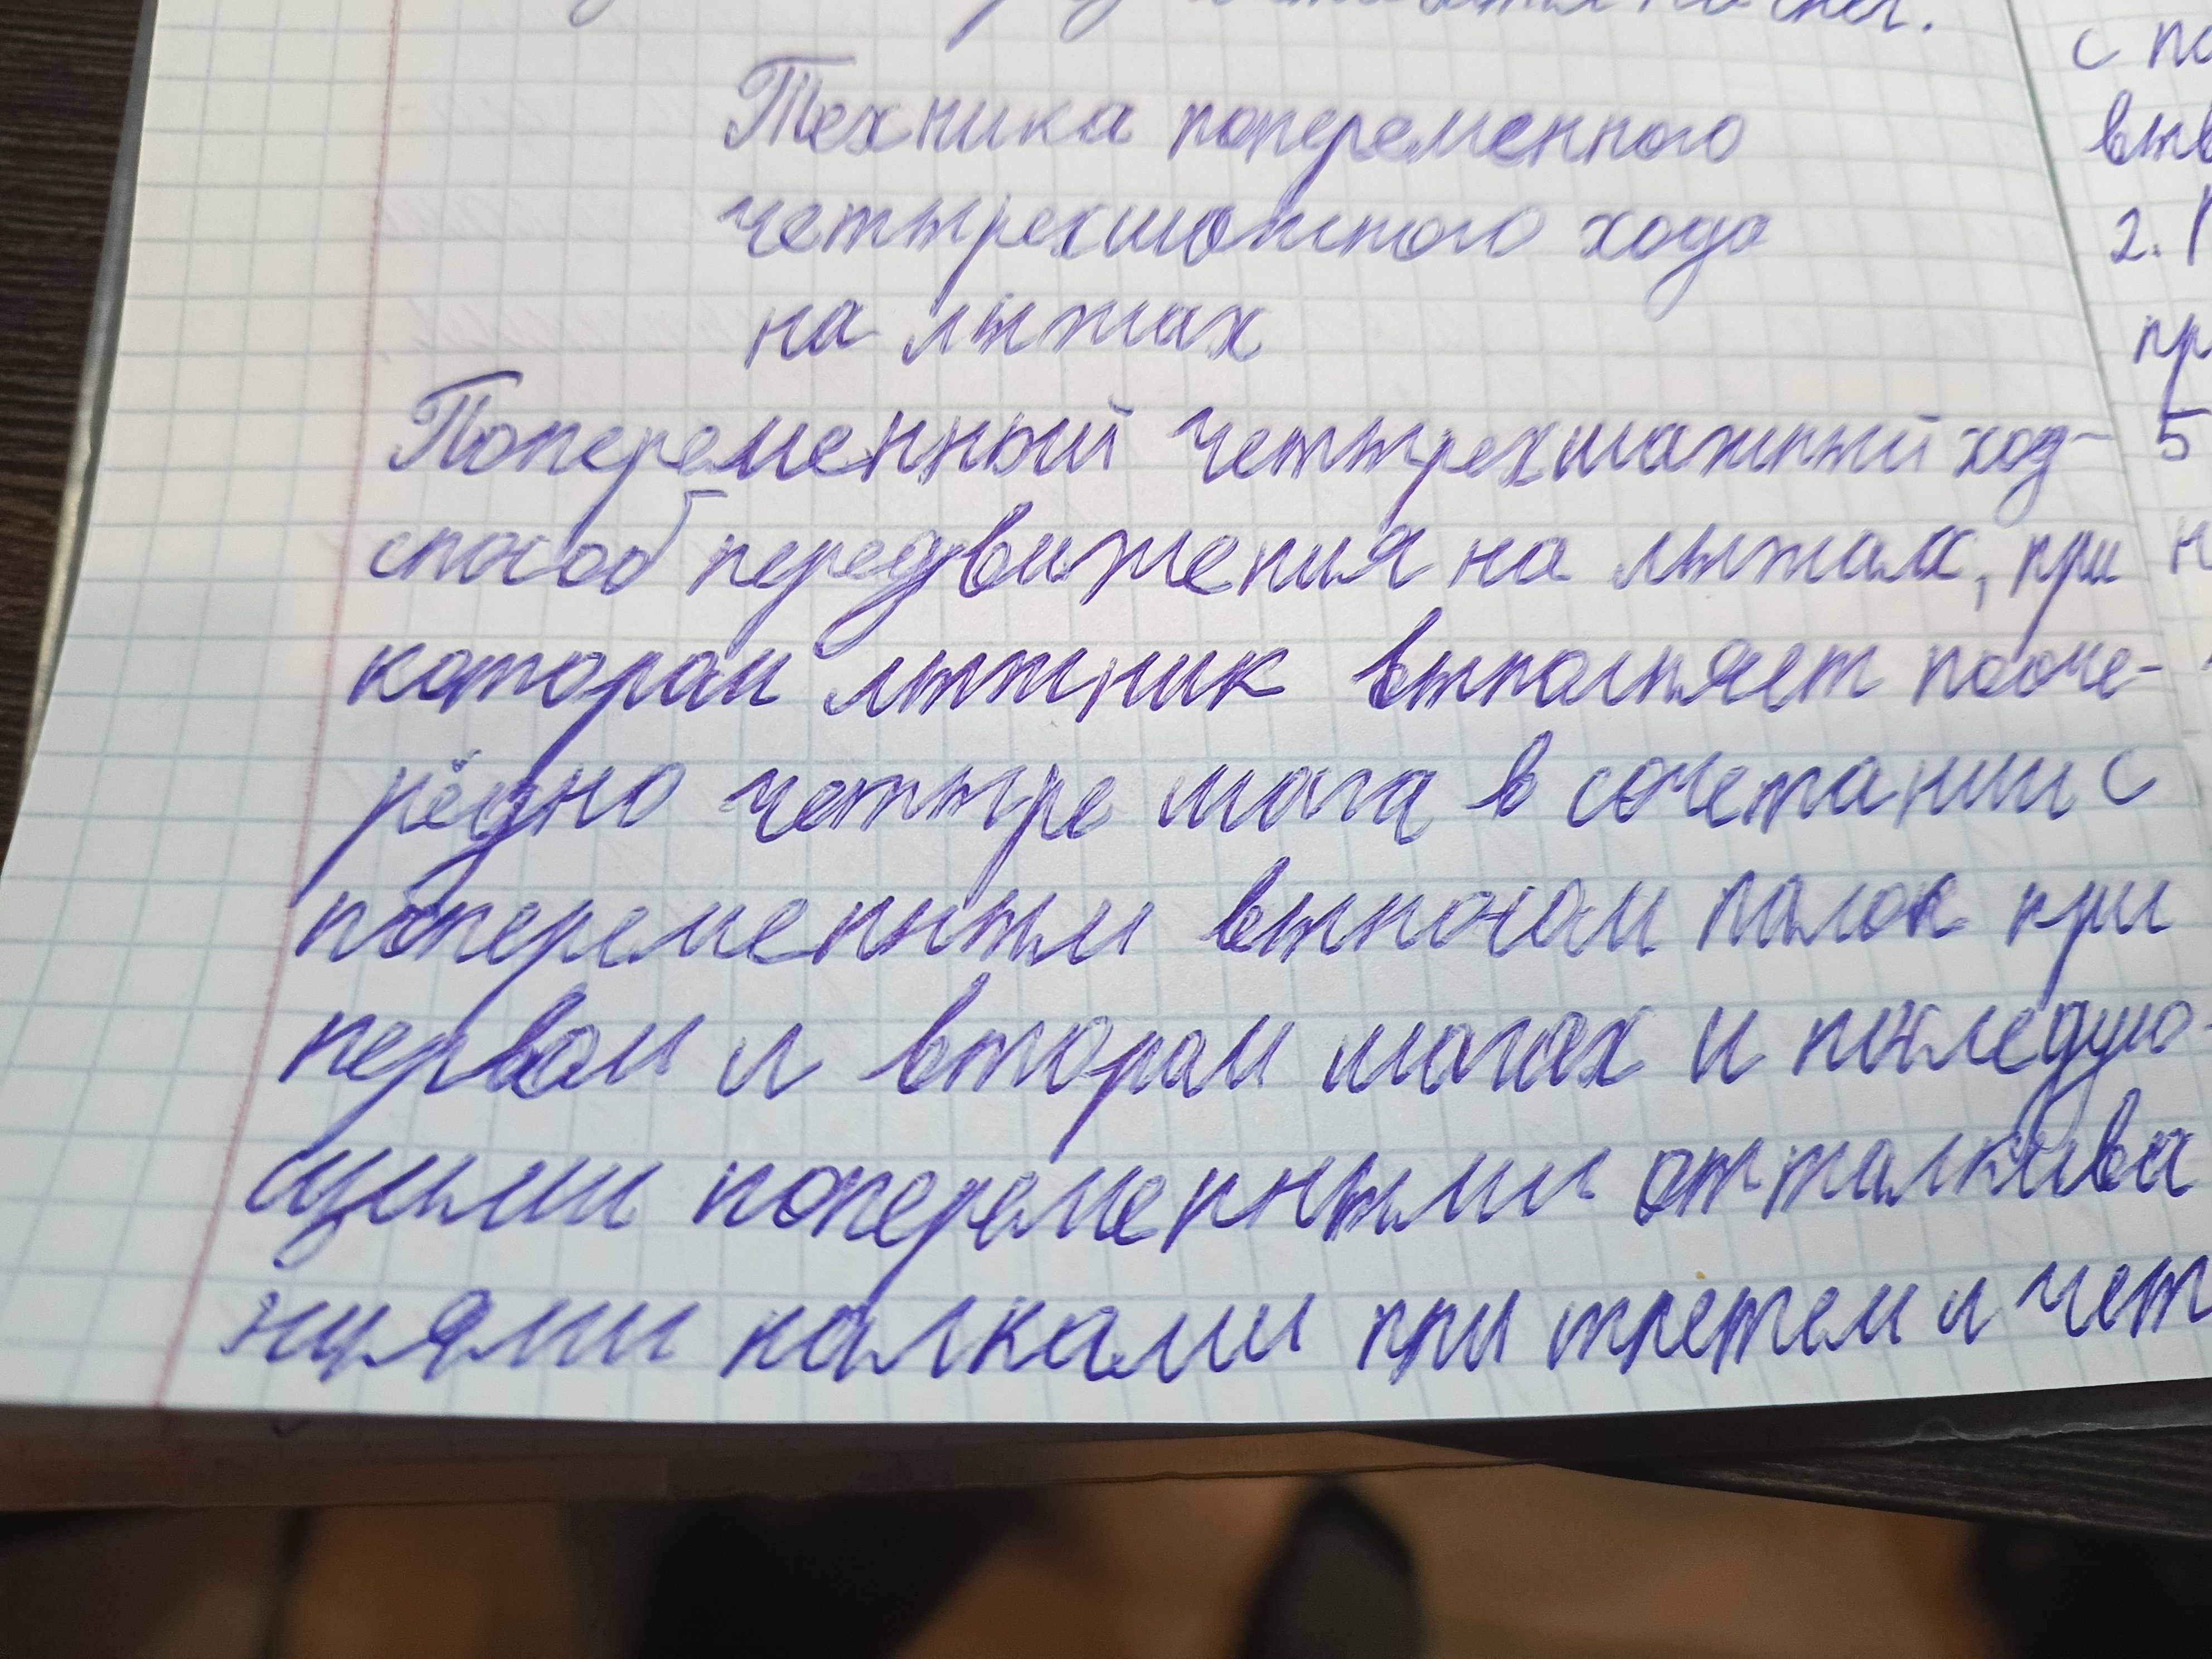 Техника попеременного
четырехшажного хода
на лыжах
Попеременный четырехшажный ход-
способ передвижения на лыжах, при
котором лыжник выполняет пооче-
рёдно четыре шага в сочетании с
попеременным выносом палок при
первом и втором шагах и последую
щими попеременными отталкива
ниями палками при третем и чет
с по
2.
пр
5
н